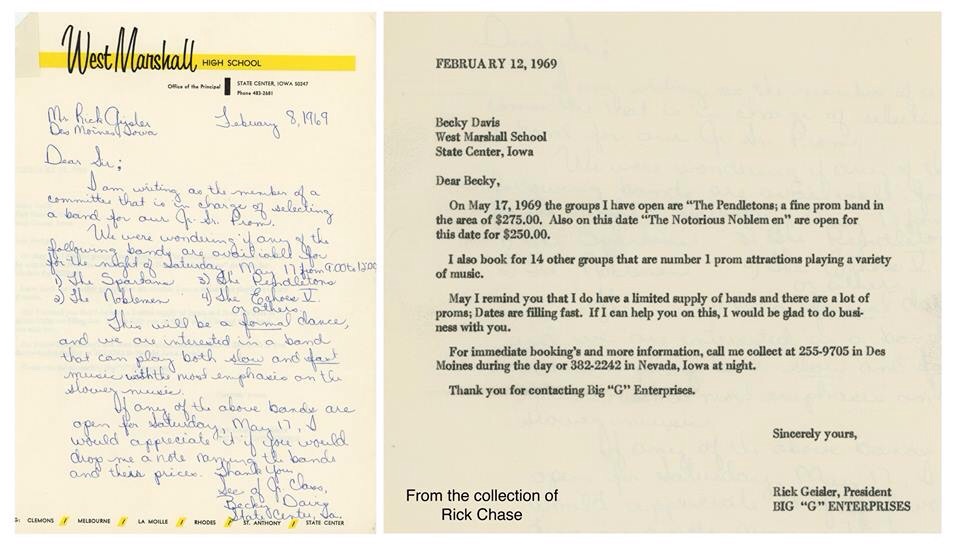 West Marshall HIGH SCHOOL
Office of the Principal
STATE CENTER, IOWA 50247
Phone 483-2681
Mr Rick Gisler
Des Moines, Iowa
February 8, 1969
Dear Sir;
I am writing as the member of a
committee that is in charge of selecting
a band for our Jr. Sr. Prom.
We were wondering if any of the
following bands are available for
for the night of Saturday, May 17 from 9:00 to 12:00
1) The Spartans 3) The Pendletons
2) The Noblemen 4) The Echoes V.
or others
This will be a formal dance,
and we are interested in a band
that can play both slow and fast
music with the most emphasis on the
slower music.
If any of the above bands are
open for Saturday, May 17, I
would appreciate it if you would
drop me a note naming the bands
and their prices. Thank You,
Sec of Jr Class,
Becky Davis
State Center, Ia.
G: CLEMONS / MELBOURNE / LA MOILLE / RHODES / ST. ANTHONY / STATE CENTER
FEBRUARY 12, 1969
Becky Davis
West Marshall School
State Center, Iowa
Dear Becky,
On May 17, 1969 the groups I have open are "The Pendletons; a fine prom band in
the area of $275.00. Also on this date "The Notorious Noblem en" are open for
this date for $250.00.
I also book for 14 other groups that are number 1 prom attractions playing a variety
of music.
May I remind you that I do have a limited supply of bands and there are a lot of
proms; Dates are filling fast. If I can help you on this, I would be glad to do busi-
ness with you.
For immediate booking's and more information, call me collect at 255-9705 in Des
Moines during the day or 382-2242 in Nevada, Iowa at night.
Thank you for contacting Big "G" Enterprises.
Sincerely yours,
Rick Geisler, President
BIG "G" ENTERPRISES
From the collection of
Rick Chase